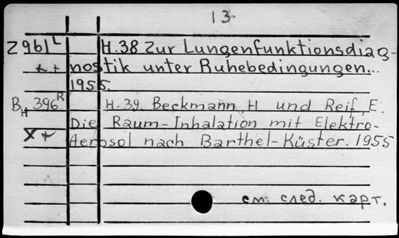 13
Z961L H.38 Zur Lungenfunktionsdiag-
x+ nostik unter Ruhebedingungen...
1955
BH 396R H.39. Beckmann, H und Reif, E.
Die Raum-Inhalation mit Elektro-
x+ Aerosol nach Barthel-Küster. 1955
см. след. карт.